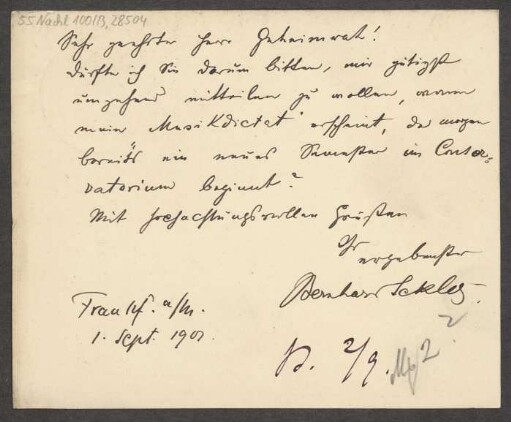 55 Nachl 100/B, 28504
Sehr geehrter Herr Geheimrat!
Dürfte ich Sie darum bitten, mir gütigst
umgehend mitteilen zu wollen, wann
mein „Musikdictat“ erscheint, da morgen
bereits ein neues Semester im Conser=
vatorium beginnt?
Mit hochachtungsvollen Grüßen
Ihr
ergebenster
Bernhard Sekles.
Frankf. a/M.
1. Sept. 1901
B. 2/9.
2